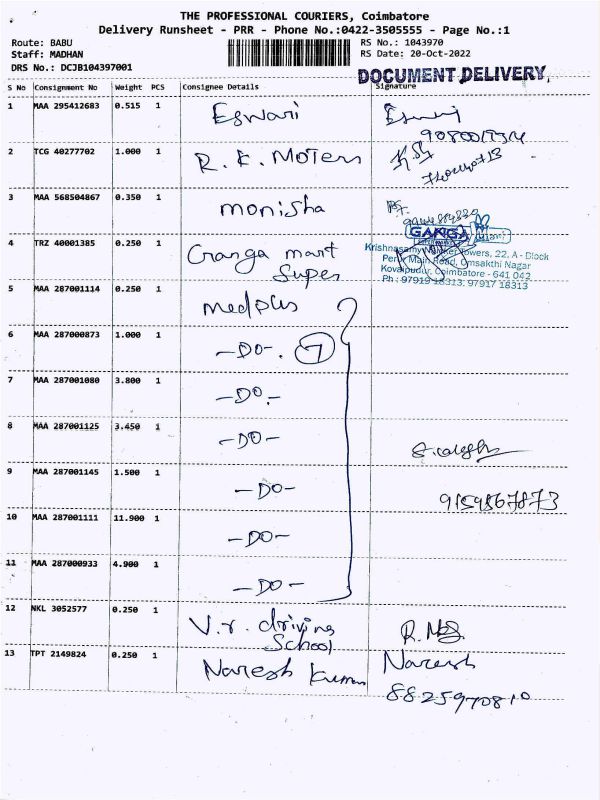 THE PROFESSIONAL COURIERS, Coimbatore
Delivery Runsheet - PRR - Phone No.:0422-3505555 - Page No.:1
Route: BABU
Staff: MADHAN
DRS No.: DCJB104397001
RS No.: 1043970
RS Date: 20-Oct-2022
DOCUMENT DELIVERY,
S No Consignment No Weight PCS Consignee Details Signature
1 MAA 295412683 0.515 1 Eswari
2 TCG 40277702 1.000 1 R. K. Moters
3 MAA 568504867 0.350 1 monisha
4 TRZ 40001385 0.250 1 Ganga mart Super
GANGA
Towers, 22, A - Block
Perur Main Road, Omsakthi Nagar
Kovaipudur, Coimbatore - 641 042
Ph : 97919 18313, 97917 18313
5 MAA 287001114 0.250 1 medplus
6 MAA 287000873 1.000 1 -DO-. 7
7 MAA 287001080 3.800 1 -DO-
8 MAA 287001125 3.450 1 -DO-
9 MAA 287001145 1.500 1 -DO- 9159867873
10 MAA 287001111 11.900 1 -DO-
11 MAA 287000933 4.900 1 -DO-
12 NKL 3052577 0.250 1 V.r. driving School
13 TPT 2149824 0.250 1 Naresh Kumar Naresh
8825970810